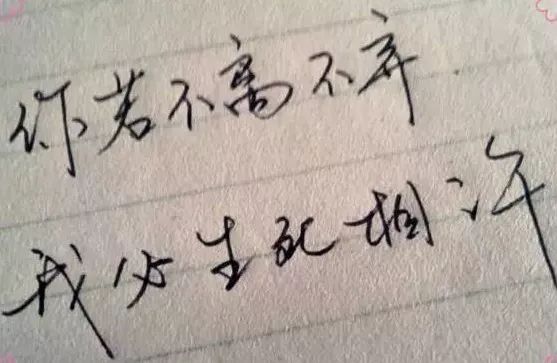 你若不离不弃
我必生死相许